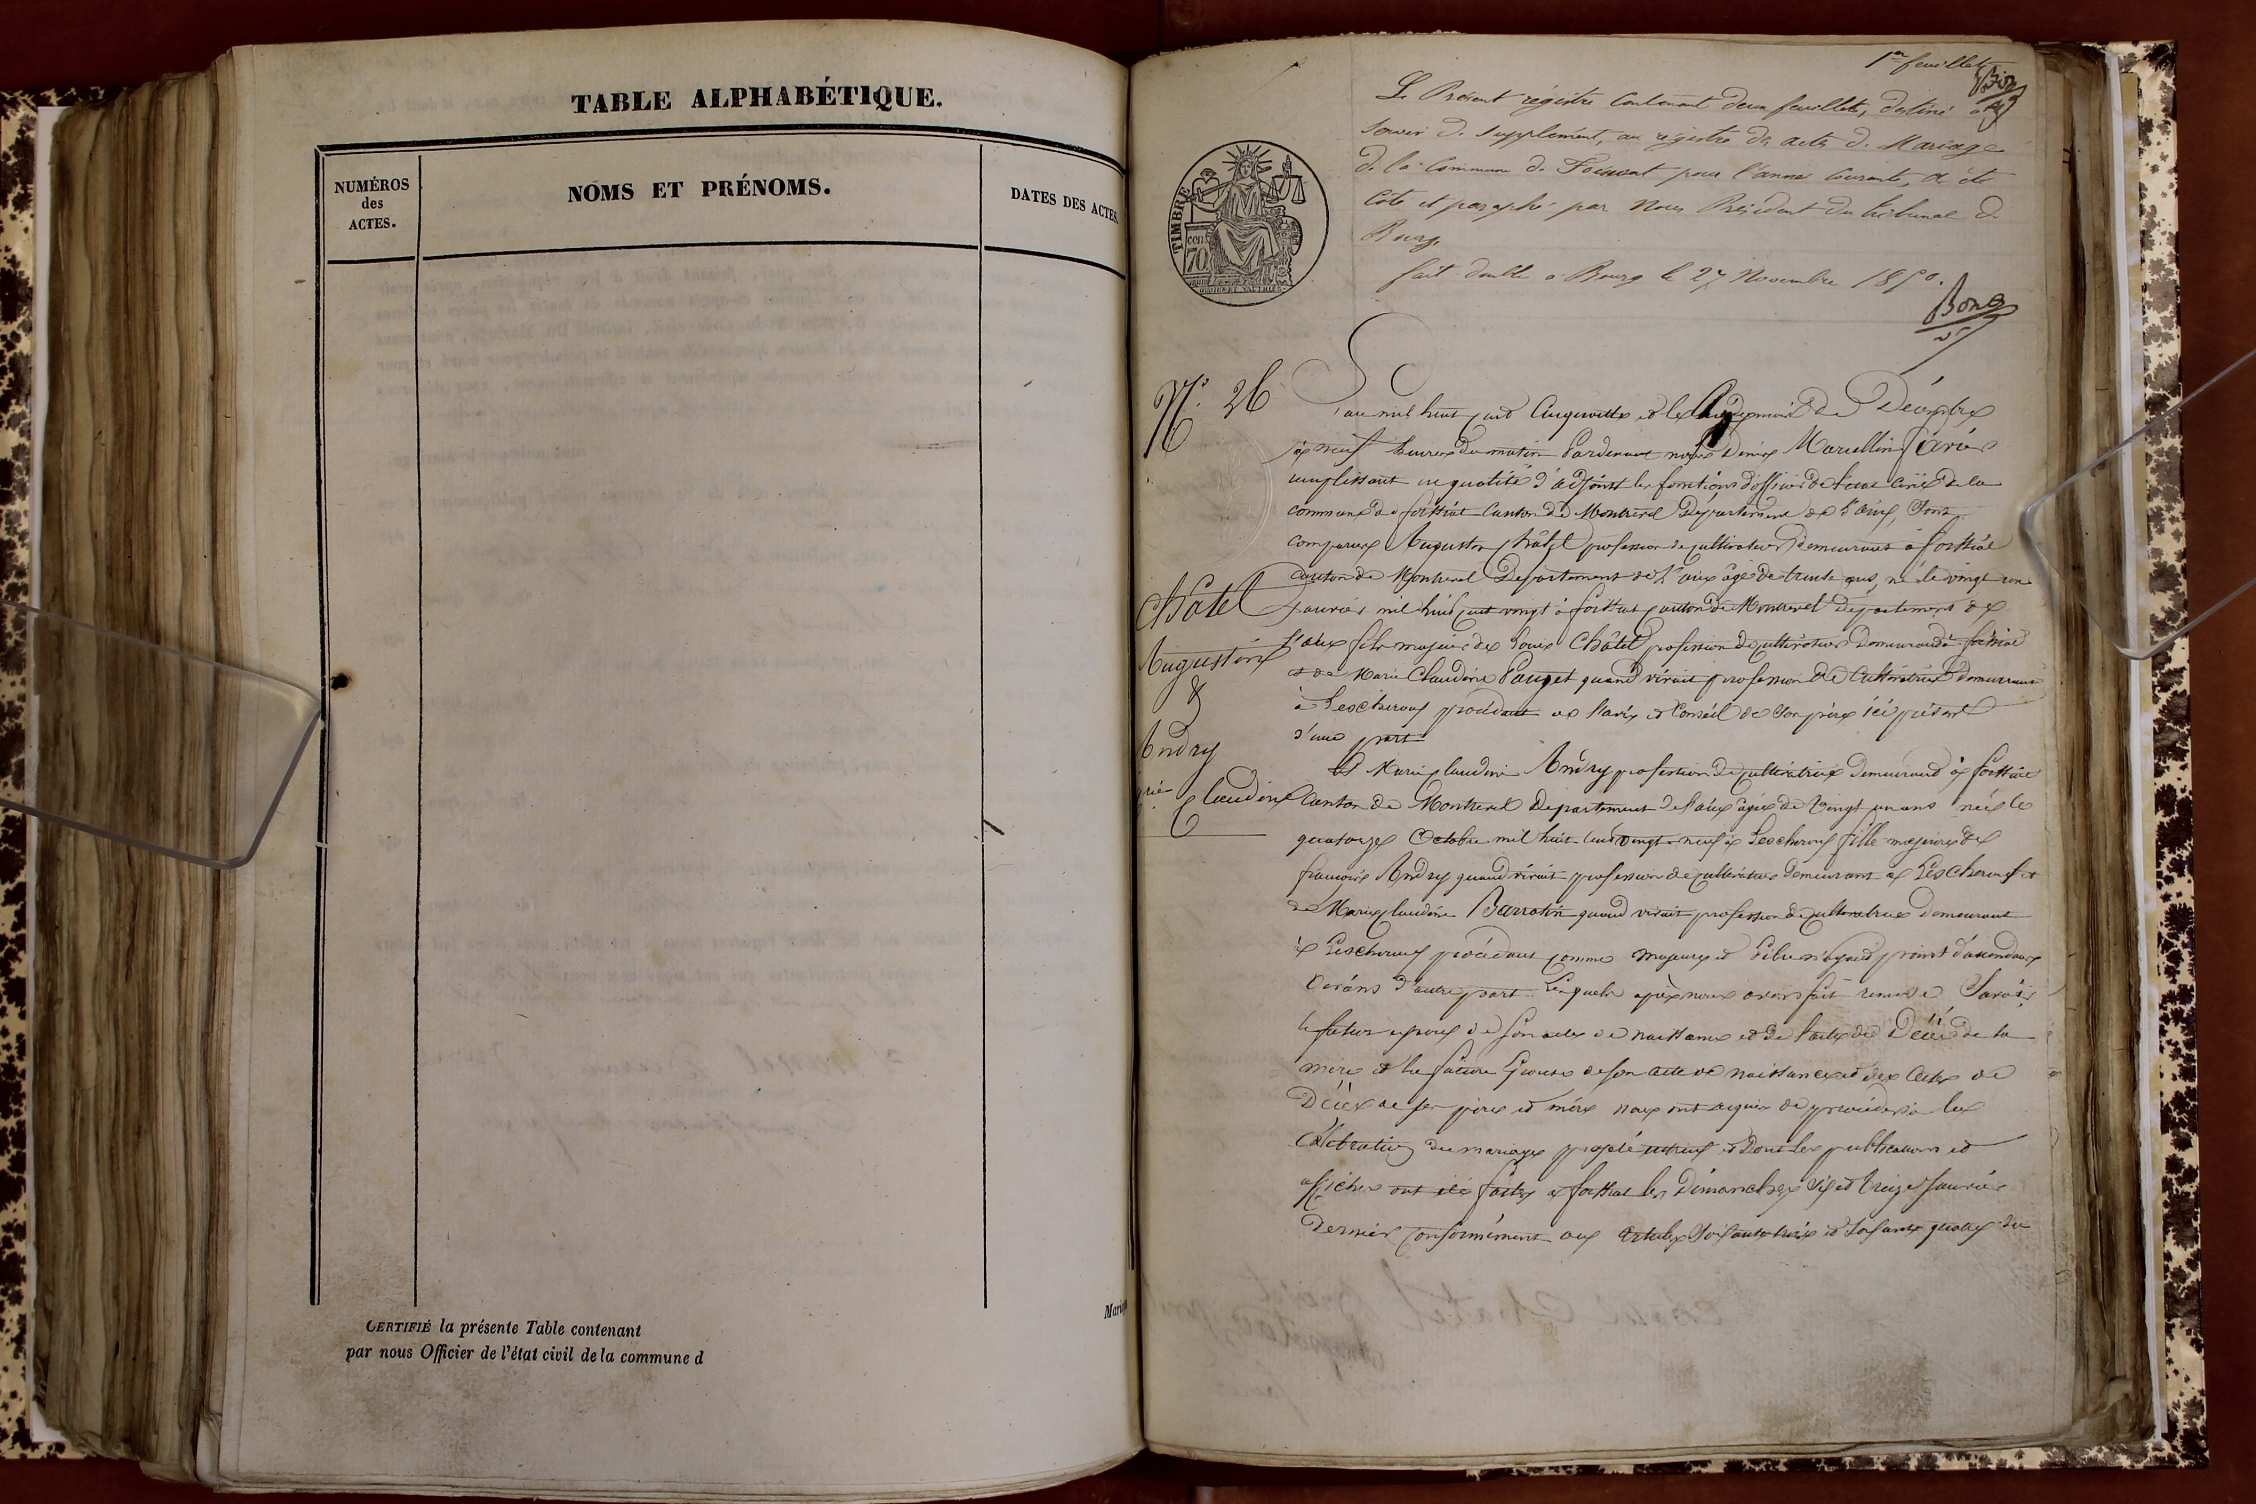 TABLE ALPHABÉTIQUE.
NUMÉROS
des
ACTES.
NOMS ET PRÉNOMS.
DATES DES ACTES.
CERTIFIÉ la présente Table contenant
par nous Officier de l'état civil de la commune d
1er feuillet
Le Présent régistre contenant deux feuillets, destiné à
servir de supplément, au régistre des actes de Mariage
de la Commune de pour l'année courante, a été
Coté et paraphé par Nous Président du tribunal de
Bourg.
fait double à Bourg le 27 Novembre 1850.
TIMBRE
70
N° 26
L'an mil huit cent cinquante et le mois de Décembre
à neuf heures du matin Pardevant nous Marcellin
remplissant en qualité d'adjoint les fonctions d'officier de l'état civil de la
commune de foissiat Canton de Montrevel Département de l'ain, Sont
comparus Augustin Châtel profession de cultivateur demeurant à foissiat
Canton de Montrevel Département de L'ain âgé de trente ans, né le vingt un
janvier mil huit cent vingt à foissiat canton de Montrevel département de
l'ain fils majeur de Louis Châtel profession de cultivateur demeurant à foissiat
et de Marie Claudine Pauget quand vivait profession de Cultivatrice demeurant
à Lescheroux procédant de l'avis et Conseil de son père ici présent
d'une part
Châtel
Augustin
&
Andry
Claudine
Et Marie Claudine Andry profession de cultivatrice demeurant à foissiat
Canton de Montrevel Département de l'ain âgée de vingt un ans née le
quatorze Octobre mil huit cent vingt neuf à Lescheroux fille majeure de
françois Andry quand vivait profession de cultivateur demeurant à Lescheroux et
de Marie Claudine Barrotin quand vivait profession de cultivatrice demeurant
à Lescheroux procédant comme majeure et libre n'ayant point d'ascendans
vivans d'autre part Lesquels après nous avoir fait remise Savoir
le futur époux de son acte de naissance et de l'acte de Décès de sa
mère et la future Epouse de son acte de naissance et des Actes de
Décès de ses père et mère nous ont requis de procéder à la
Célébration du mariage projeté entre eux et Dont les publications et
affiches ont été faites à foissiat les Dimanches six et treize janvier
Dernier conformément aux Articles soixante trois et soixante quatre du